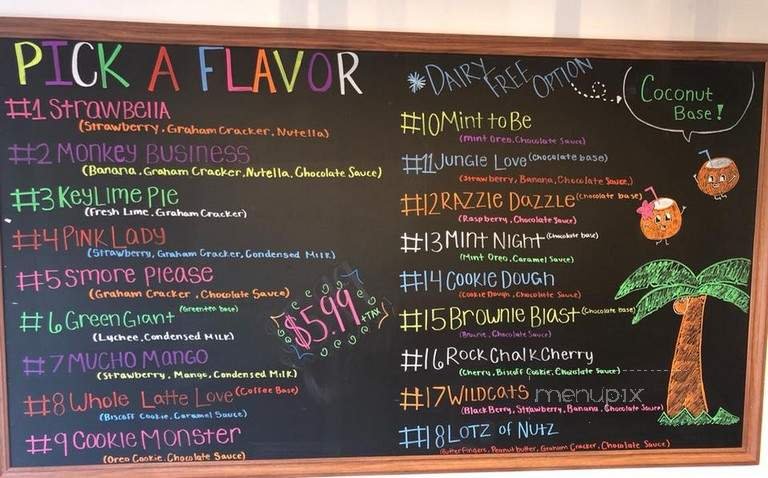 PICK A FLAVOR
#1 Strawbella
(Strawberry, Graham Cracker, Nutella)
#2 Monkey Business
(Banana, Graham Cracker, Nutella, Chocolate Sauce)
#3 Key Lime Pie
(Fresh Lime, Graham Cracker)
#4 Pink Lady
(Strawberry, Graham Cracker, Condensed Milk)
#5 S'more Please
(Graham Cracker, Chocolate Sauce)
#6 Green Giant (Greentea base)
(Lychee, Condensed Milk)
#7 Mucho Mango
(Strawberry, Mango, Condensed Milk)
#8 Whole Latte Love (Coffee Base)
(Biscoff Cookie, Caramel Sauce)
#9 Cookie Monster
(Oreo Cookie, Chocolate Sauce)
$5.99 +TAX
*Dairy Free Option
Coconut
Base!
#10 Mint to Be
(Mint Oreo, Chocolate Sauce)
#11 Jungle Love (Chocolate base)
(Strawberry, Banana, Chocolate Sauce)
#12 Razzle Dazzle (Chocolate base)
(Raspberry, Chocolate Sauce)
#13 Mint Night (Chocolate base)
(Mint Oreo, Caramel Sauce)
#14 Cookie Dough
(Cookie Dough, Chocolate Sauce)
#15 Brownie Blast (Chocolate base)
(Brownie, Chocolate Sauce)
#16 Rock Chalk Cherry
(Cherry, Biscoff Cookie, Chocolate Sauce)
#17 Wildcats
(BlackBerry, Strawberry, Banana, Chocolate Sauce)
#18 Lotz of Nutz
(Butterfingers, Peanut butter, Graham Cracker, Chocolate Sauce)
menupix